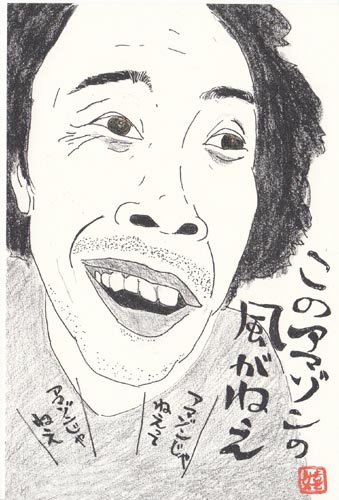 このアマゾンの
風がねえ
アマゾンじゃ
ねえて
アマゾンじゃ
ねえ